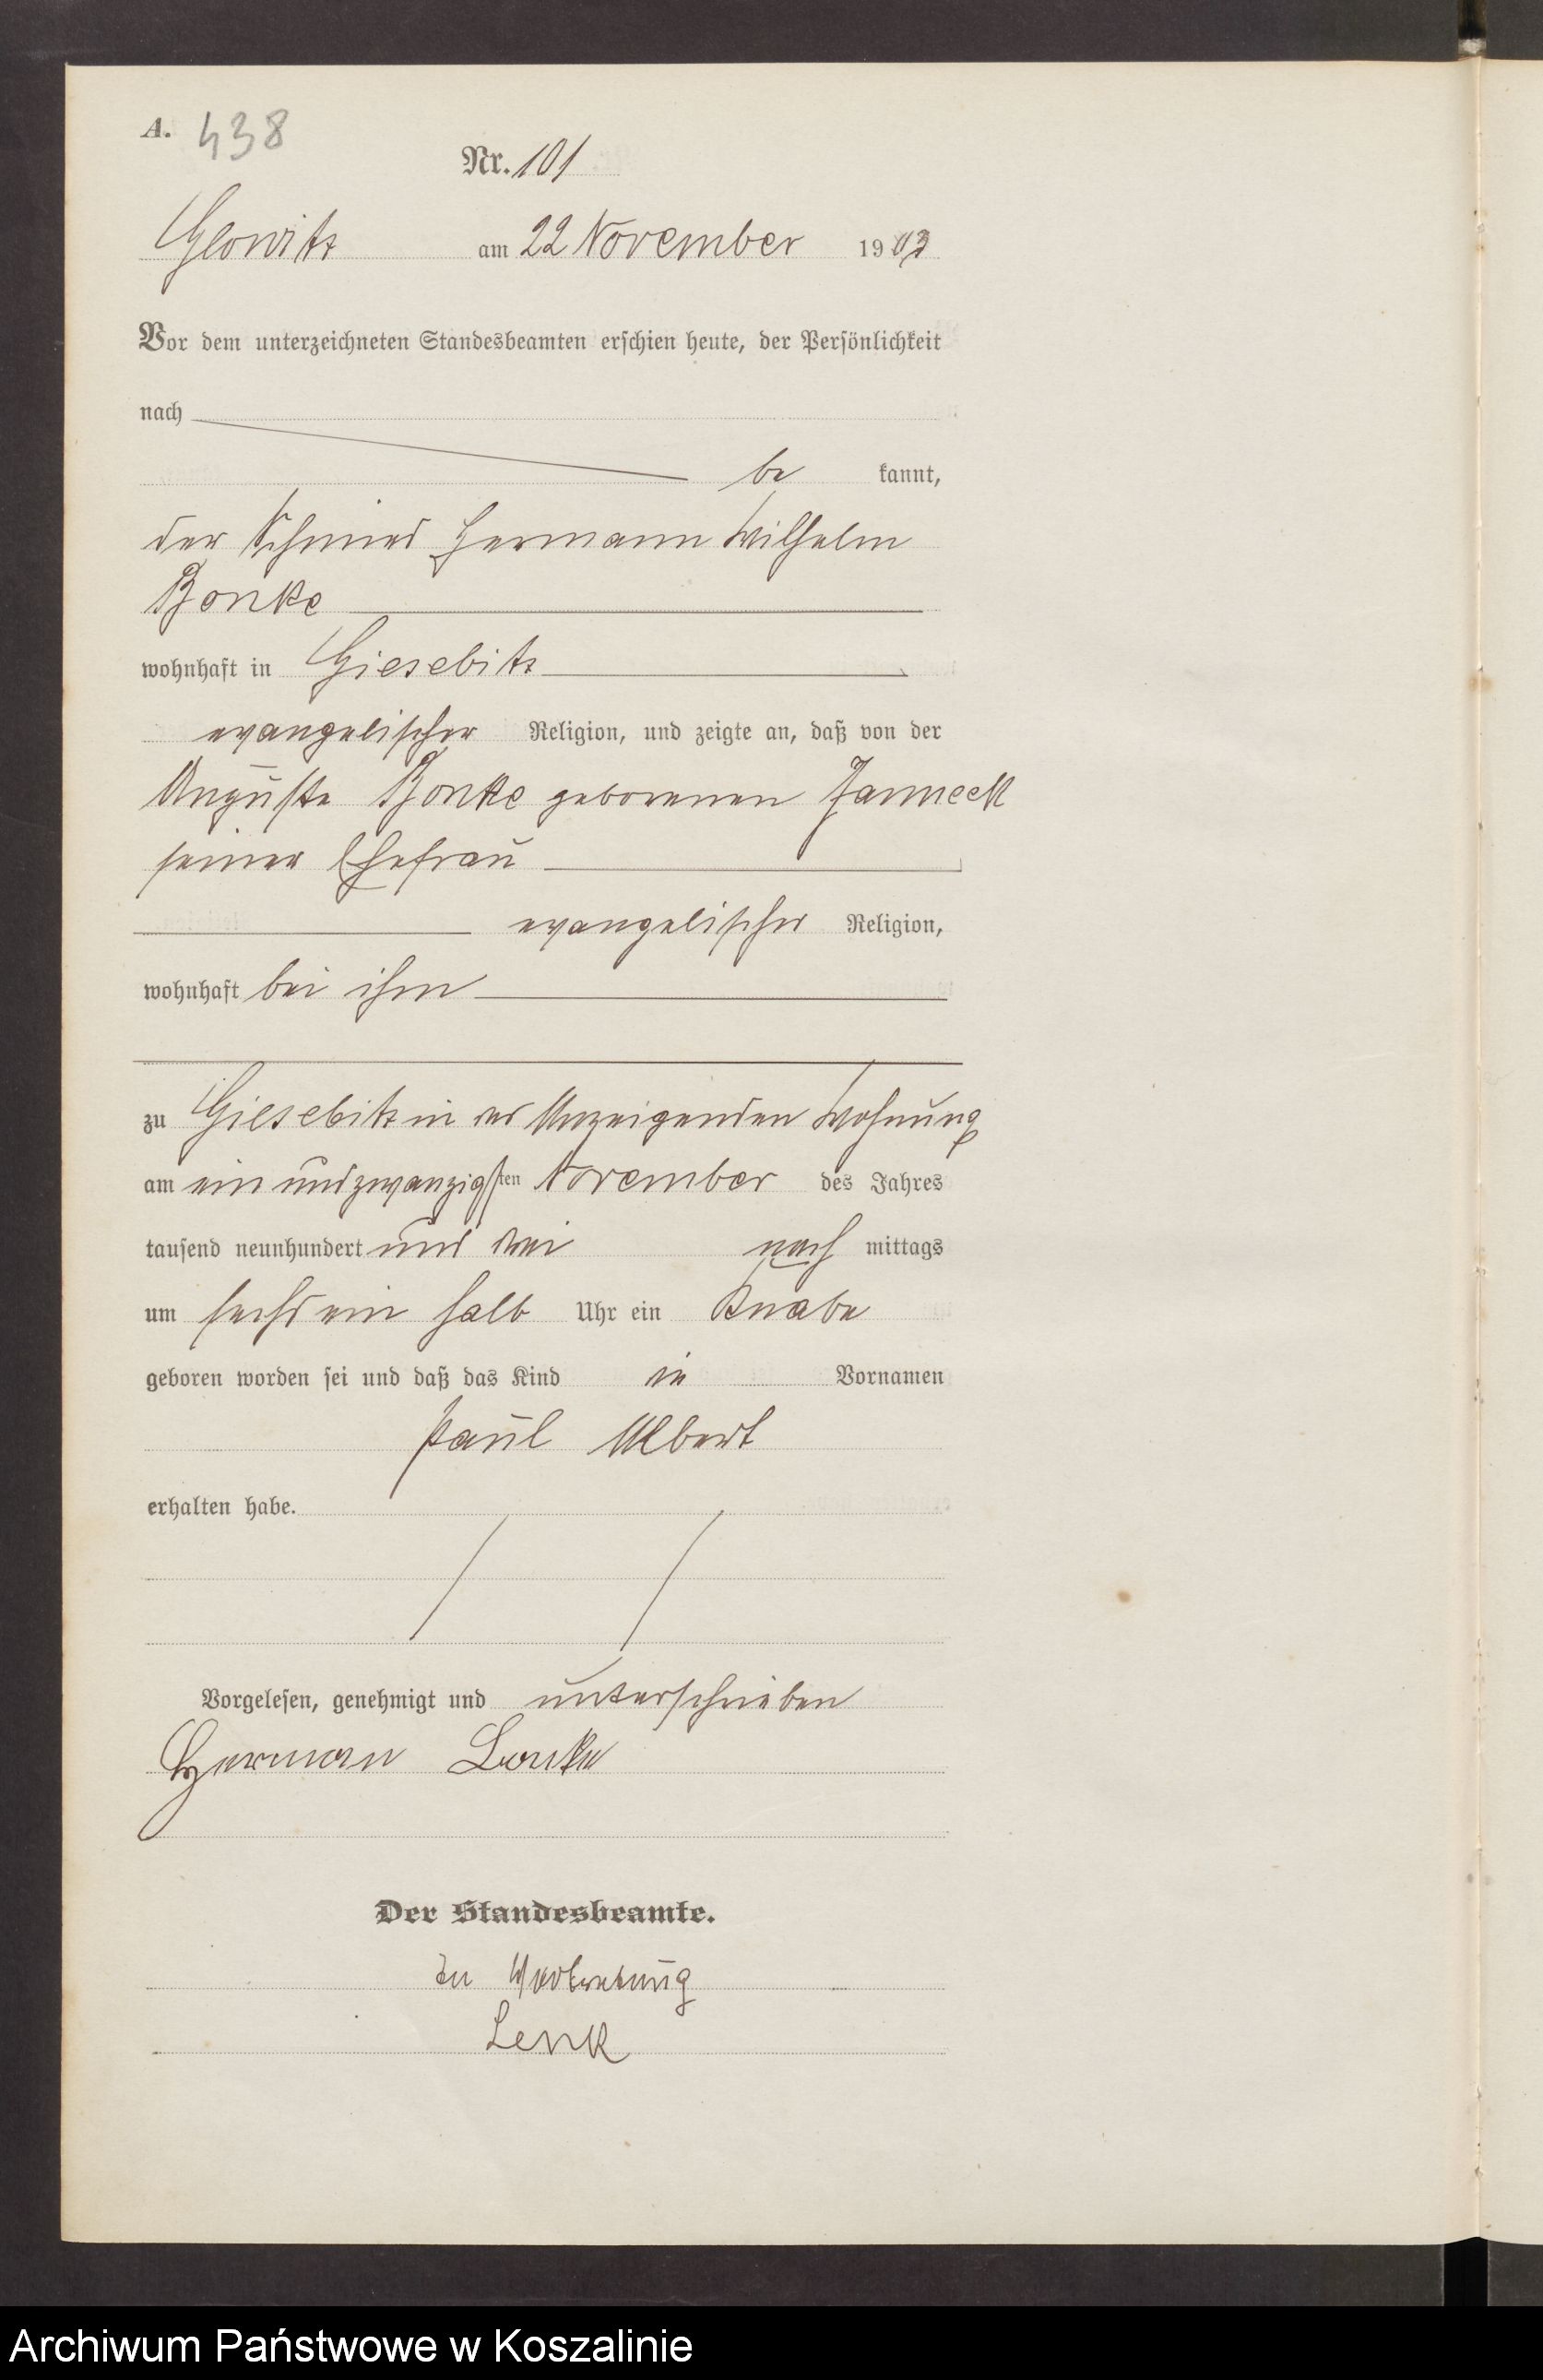 A. 438
Nr. 101
Glowitz am 22 November 1903
Vor dem unterzeichneten Standesbeamten erschien heute, der Persönlichkeit
nach
be kannt,
der Schmied Hermann Wilhelm
Bonke
wohnhaft in Giesebitz
evangelischer Religion, und zeigte an, daß von der
Auguste Bonke geborenen Janneck
seiner Ehefrau
evangelischer Religion,
wohnhaft bei ihm
zu Giesebitz in des Anzeigenden Wohnung
am ein und zwanzigsten November des Jahres
tausend neunhundert und drei nach mittags
um sechs ein halb Uhr ein Knabe
geboren worden sei und daß das Kind die Vornamen
Paul Albert
erhalten habe.
Vorgelesen, genehmigt und unterschrieben
Herman Bonke
Der Standesbeamte.
In Vertretung
Lenk
Archiwum Państwowe w Koszalinie